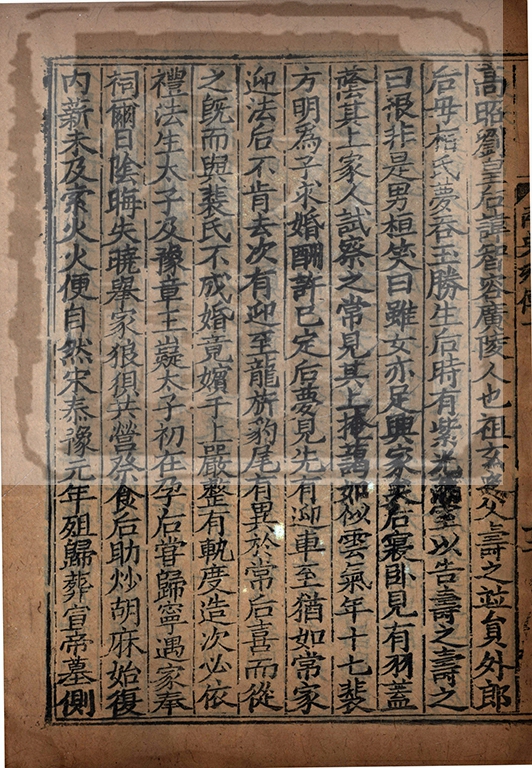 高昭劉皇后諱智容廣陵人也祖玄之父壽之並員外郎
后母桓氏夢吞玉勝生后時有紫光滿室以告壽之壽之
曰恨非是男桓笑曰雖女亦足興家矣后寢卧見有羽蓋
蔭其上家人試察之常見其上掩藹如似雲氣年十七裴
方明為子求婚酬許已定后夢見先有迎車至猶如常家
迎法后不肯去次有迎至龍旂豹尾有異於常后喜而從
之既而與裴氏不成婚竟嬪于上嚴整有軌度造次必依
禮法生太子及豫章王嶷太子初在孕后嘗歸寧遇家奉
祠爾日陰晦失曉舉家狼狽共營祭食后助炒胡麻始復
内薪未及索火火便自然宋泰豫元年殂歸葬宣帝墓側